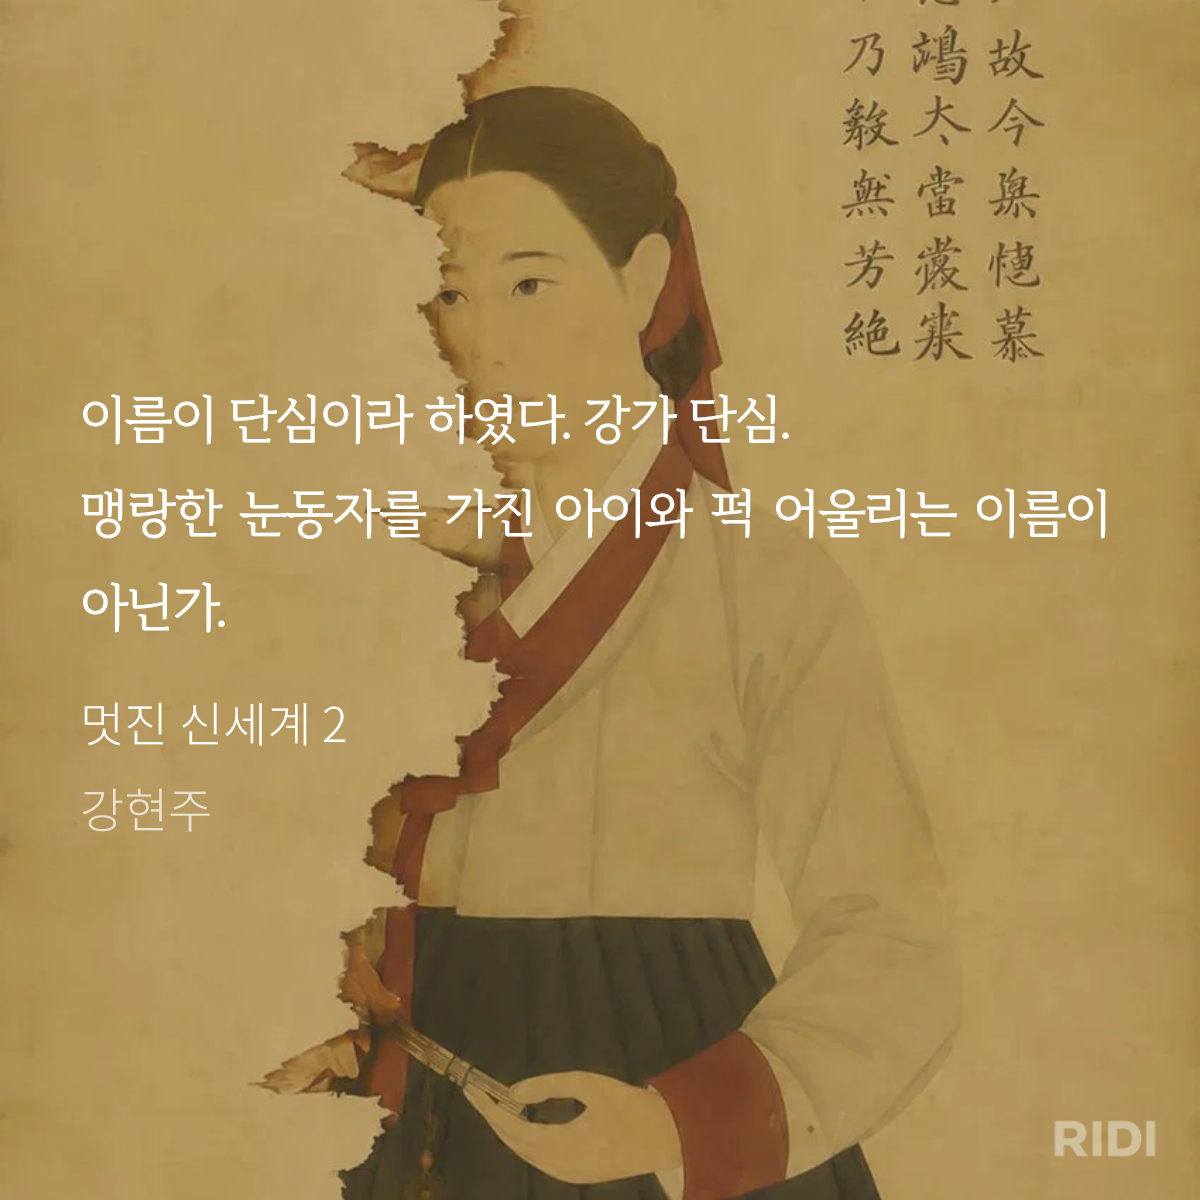 故今㮣憓慕
鴆太當裳寀
乃毅無芳絶
이름이 단심이라 하였다. 강가 단심.
맹랑한 눈동자를 가진 아이와 퍽 어울리는 이름이
아닌가.
멋진 신세계 2
강현주
RIDI